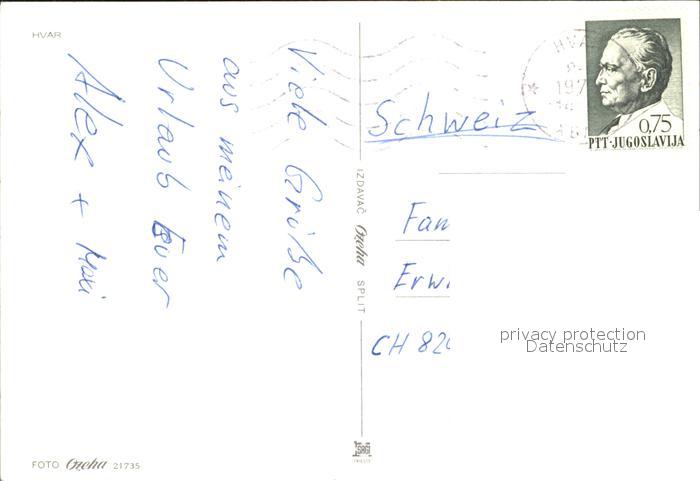 HVAR
Viele Grüße
aus meinem
Urlaub Euer
Alex + Maxi
FOTO Ozeha 21735
IZDAVAČ Ozeha SPLIT
HVA
197
0,75
PTT·JUGOSLAVIJA
Schweiz
Fam
Erwi
CH 820
privacy protection
Datenschutz